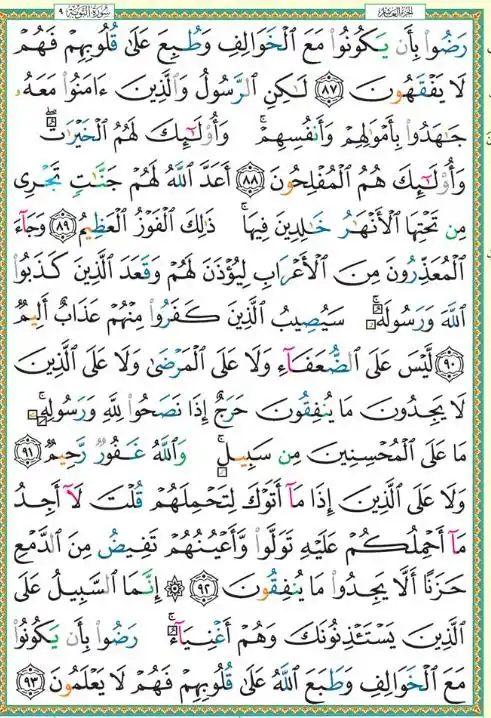 سُورَةُ التَّوْبَةِ ٩
الجُزْءُ العَاشِرُ
رَضُوا۟ بِأَن يَكُونُوا۟ مَعَ ٱلْخَوَالِفِ وَطُبِعَ عَلَىٰ قُلُوبِهِمْ فَهُمْ
لَا يَفْقَهُونَ ٨٧ لَـٰكِنِ ٱلرَّسُولُ وَٱلَّذِينَ ءَامَنُوا۟ مَعَهُۥ
جَـٰهَدُوا۟ بِأَمْوَٰلِهِمْ وَأَنفُسِهِمْ ۚ وَأُو۟لَـٰٓئِكَ لَهُمُ ٱلْخَيْرَٰتُ ۖ
وَأُو۟لَـٰٓئِكَ هُمُ ٱلْمُفْلِحُونَ ٨٨ أَعَدَّ ٱللَّهُ لَهُمْ جَنَّـٰتٍ تَجْرِى
مِن تَحْتِهَا ٱلْأَنْهَـٰرُ خَـٰلِدِينَ فِيهَا ۚ ذَٰلِكَ ٱلْفَوْزُ ٱلْعَظِيمُ ٨٩ وَجَآءَ
ٱلْمُعَذِّرُونَ مِنَ ٱلْأَعْرَابِ لِيُؤْذَنَ لَهُمْ وَقَعَدَ ٱلَّذِينَ كَذَبُوا۟
ٱللَّهَ وَرَسُولَهُۥ ۚ سَيُصِيبُ ٱلَّذِينَ كَفَرُوا۟ مِنْهُمْ عَذَابٌ أَلِيمٌ
٩٠ لَّيْسَ عَلَى ٱلضُّعَفَآءِ وَلَا عَلَى ٱلْمَرْضَىٰ وَلَا عَلَى ٱلَّذِينَ
لَا يَجِدُونَ مَا يُنفِقُونَ حَرَجٌ إِذَا نَصَحُوا۟ لِلَّهِ وَرَسُولِهِۦ ۚ
مَا عَلَى ٱلْمُحْسِنِينَ مِن سَبِيلٍ ۚ وَٱللَّهُ غَفُورٌ رَّحِيمٌ ٩١
وَلَا عَلَى ٱلَّذِينَ إِذَا مَآ أَتَوْكَ لِتَحْمِلَهُمْ قُلْتَ لَآ أَجِدُ
مَآ أَحْمِلُكُمْ عَلَيْهِ تَوَلَّوا۟ وَّأَعْيُنُهُمْ تَفِيضُ مِنَ ٱلدَّمْعِ
حَزَنًا أَلَّا يَجِدُوا۟ مَا يُنفِقُونَ ٩٢ ۞ إِنَّمَا ٱلسَّبِيلُ عَلَى
ٱلَّذِينَ يَسْتَـْٔذِنُونَكَ وَهُمْ أَغْنِيَآءُ ۚ رَضُوا۟ بِأَن يَكُونُوا۟
مَعَ ٱلْخَوَالِفِ وَطَبَعَ ٱللَّهُ عَلَىٰ قُلُوبِهِمْ فَهُمْ لَا يَعْلَمُونَ ٩٣